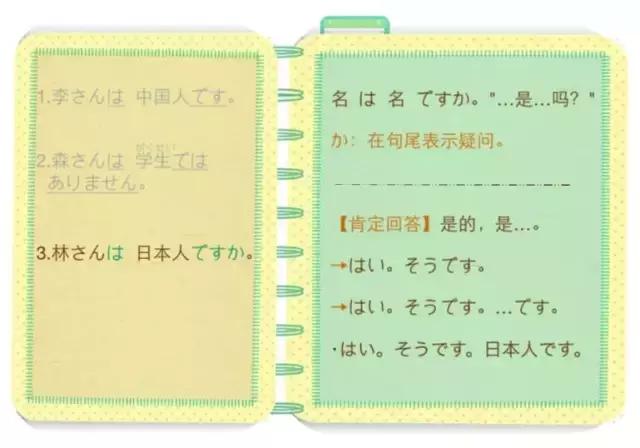 1.李さんは 中国人です。
2.森さんは 学生では
ありません。
3.林さんは 日本人ですか。
名 は 名 ですか。"...是...吗？"
か：在句尾表示疑问。
【肯定回答】是的，是...。
→はい。そうです。
→はい。そうです。...です。
·はい。そうです。日本人です。